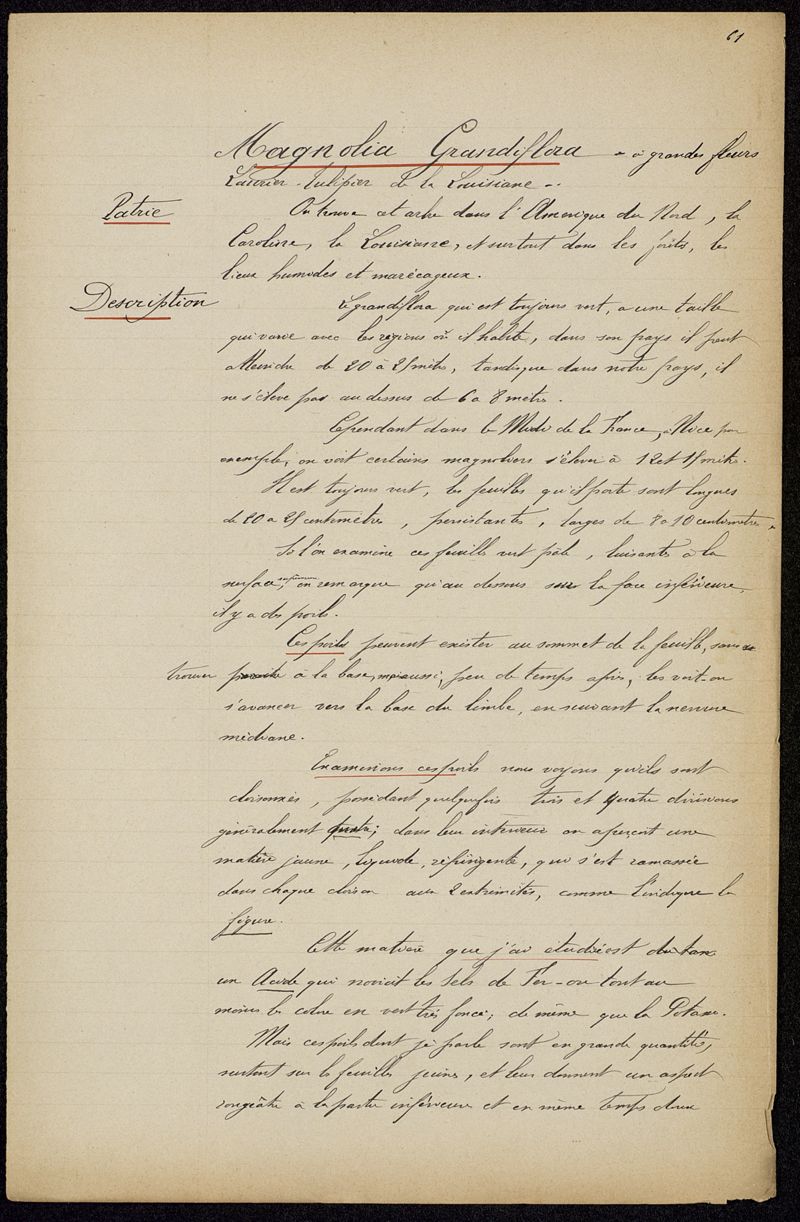 61
Magnolia Grandiflora - à grandes fleurs
Laurier-Tulipier de la Louisiane -.
Patrie
On trouve cet arbre dans l'Amérique du Nord, la
Caroline, la Louisiane, et surtout dans les forêts, les
lieux humides et marécageux.
Description
Le grandiflora qui est toujours vert, a une taille
qui varie avec les régions où il habite, dans son pays il peut
atteindre de 20 à 25 mètres, tandisque dans notre pays, il
ne s'élève pas au dessus de 6 a 8 mètres.
Cependant dans le Midi de la France, à Nice par
exemple, on voit certains magnoliers s'élever à 12 et 15 mètres.
Il est toujours vert, les feuilles qu'il porte sont longues
de 20 a 25 centimètres, persistantes, larges de 8 a 10 centimètres.
Si l'on examine ces feuilles vert pâle, luisantes à la
surface supérieure, on remarque qu'au dessous sur la face inférieure,
il y a des poils.
Ces poils peuvent exister au sommet de la feuille, sans se
trouver à la base, mais aussi, peu de temps après, les voit-on
s'avancer vers la base du limbe, en suivant la nervure
médiane.
Examinons ces poils nous voyons qu'ils sont
cloisonnés, possédant quelquefois trois et quatre divisions
généralement quatre; dans leur intérieur on aperçoit une
matière jaune, liquide, réfringente, qui s'est ramassée
dans chaque cloison aux 2 extrémités, comme l'indique la
figure.
Cette matière que j'ai etudiée est du tan
un Acide qui noircit les sels de Fer - ou tout au
moins les colore en vert très foncé; de même que la Potasse.
Mais ces poils dont je parle sont en grande quantités,
surtout sur les feuilles jeunes, et leur donnent un aspect
rougeâtre à la partie inférieure et en même temps doux